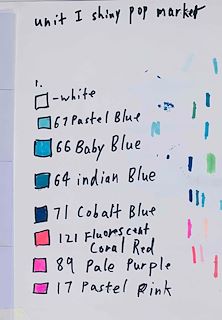 unit I shiny pop market
1.
-white
67 Pastel Blue
66 Baby Blue
64 indian Blue
71 Cobalt Blue
121 Fluorescent
Coral Red
89 Pale Purple
17 Pastel Pink